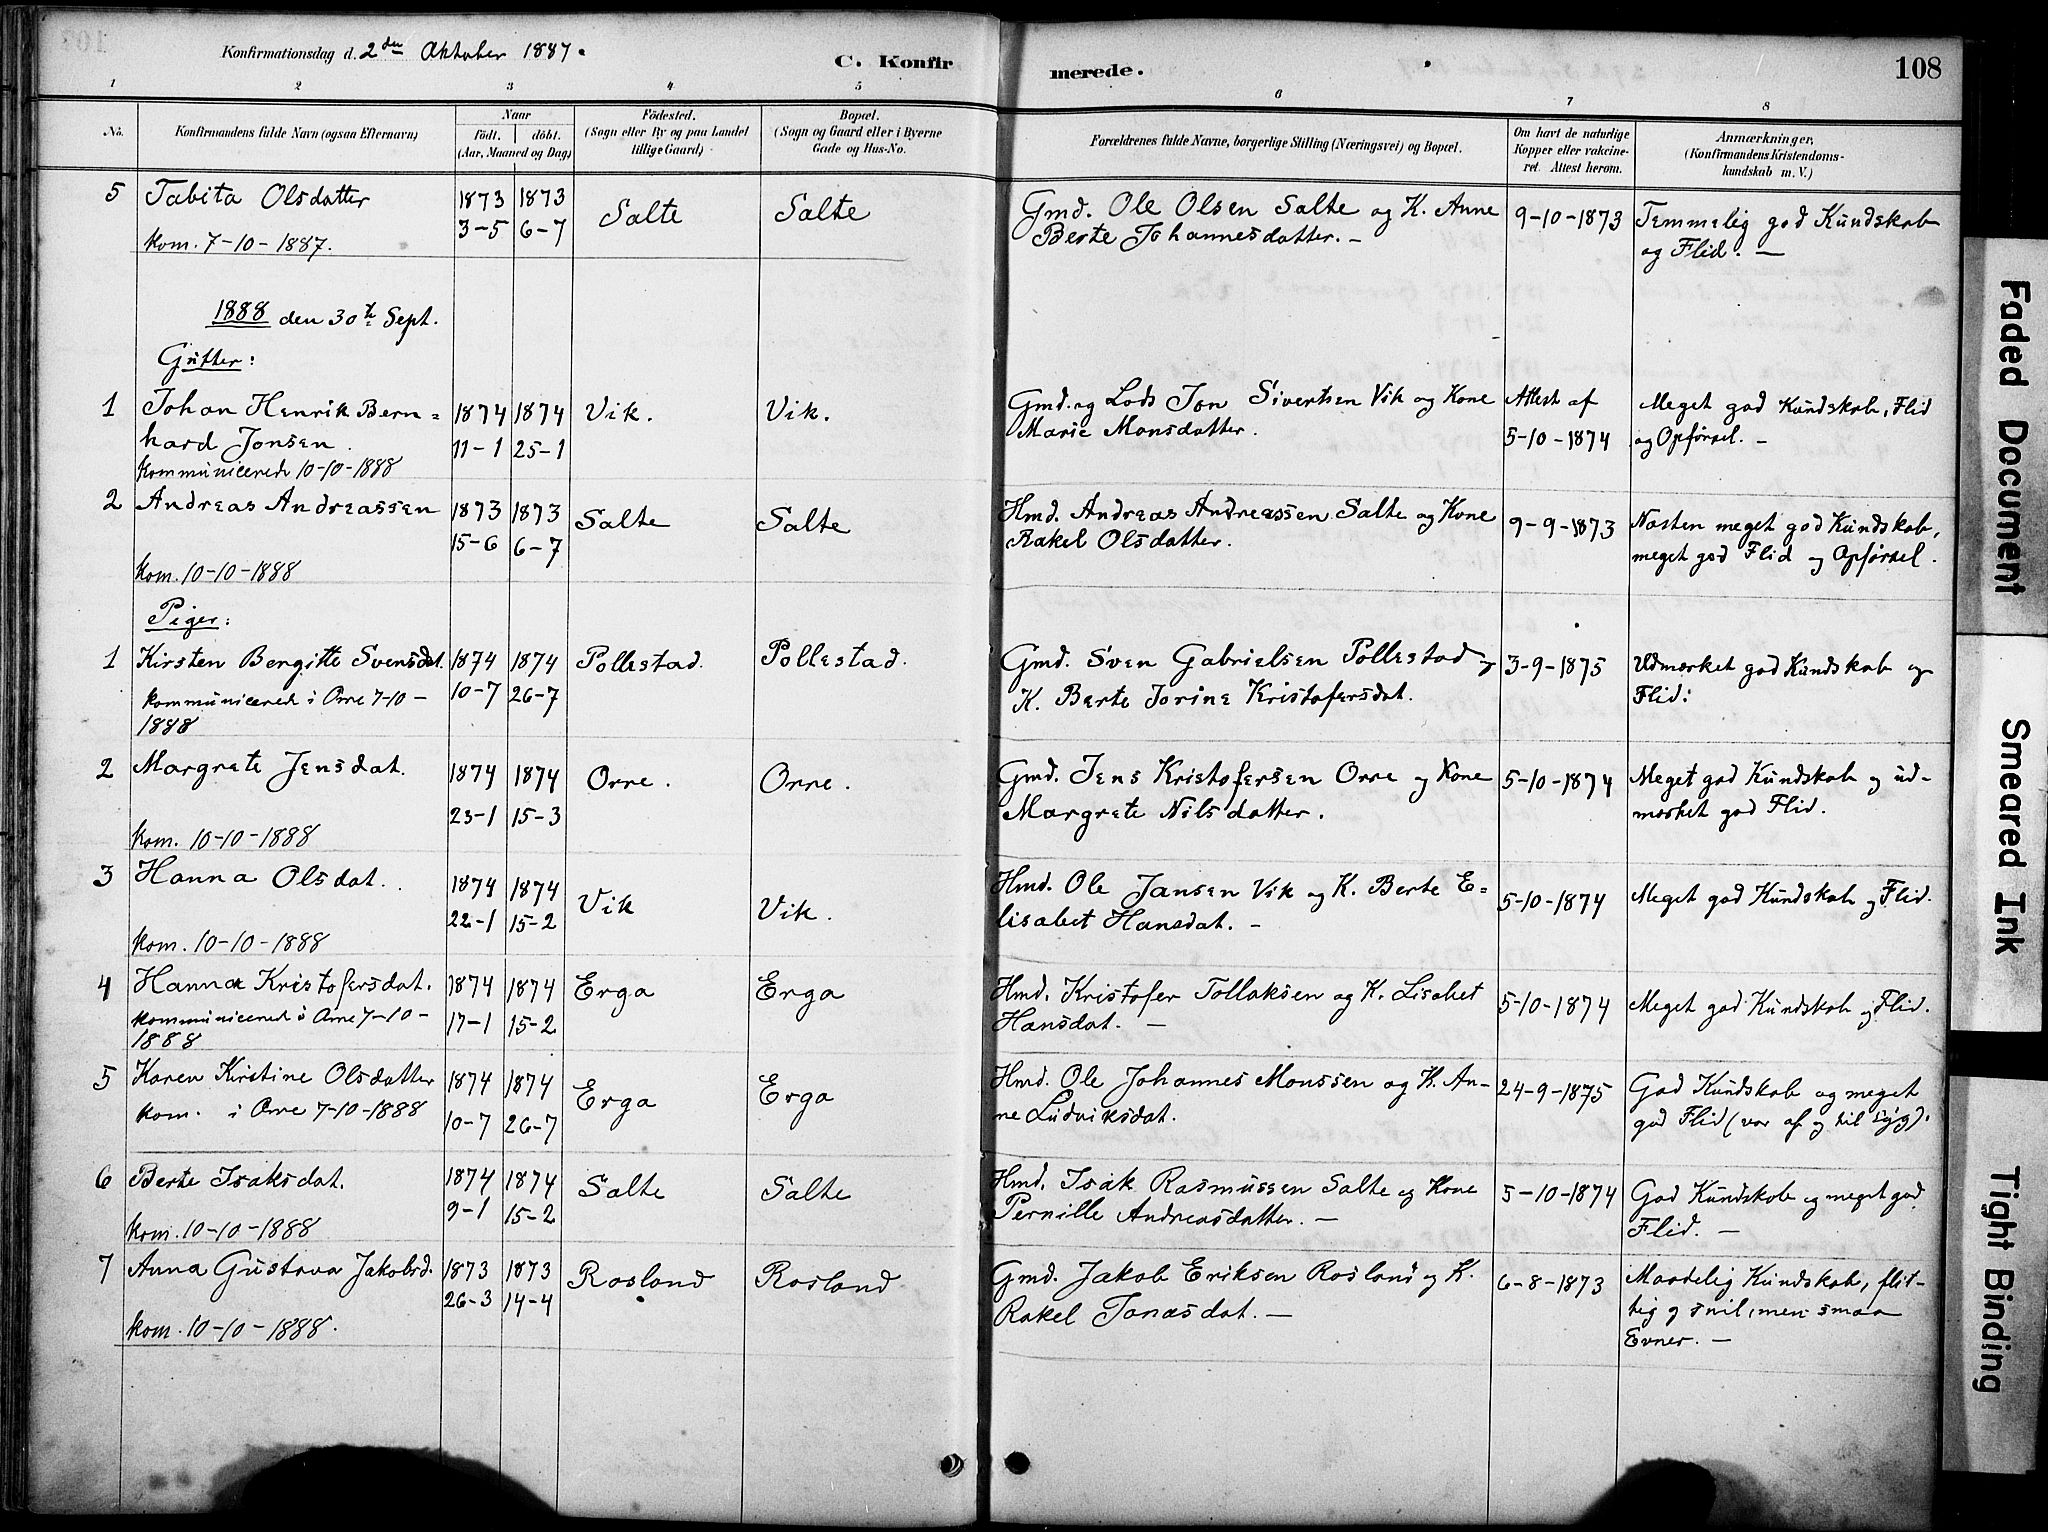 Konfirmationsdag d. 2den Oktober 1887.
C. Konfirmerede.
108
1 2 3 4 5 6 7 8
No.
Konfirmandens fulde Navn (ogsaa Efternavn)
Naar
födt. döbt.
(Aar, Maaned og Dag)
Födested.
(Sogn eller By og paa Landet
tillige Gaard)
Bopæl.
(Sogn og Gaard eller i Byerne
Gade og Hus-No.
Forældrenes fulde Navne, borgerlige Stilling (Næringsvei) og Bopæl.
Om havt de naturlige
Kopper eller vakcine-
ret. Attest herom.
Anmærkninger,
(Konfirmandens Kristendoms-
kundskab m. V.)
5 Tabita Olsdatter
kom. 7-10-1887.
1873 1873
3-5 6-7
Salte
Salte
Gmd. Ole Olsen Salte og K. Anne
Berte Johannesdatter. —
9-10-1873
Temmelig god Kundskab
og Flid. —
1888 den 30te Sept.
Gutter:
1 Johan Henrik Bern=
hard Jonsen.
kommuniceret 10-10-1888
1874 1874
11-1 25-1
Vik.
Vik.
Gmd. og Lods Jon Sivertsen Vik og Kone
Marie Monsdatter.
Attest af
5-10-1874
Meget god Kundskab, Flid
og Opførsel. —
2 Andreas Andreassen
kom. 10-10-1888
1873 1873
15-6 6-7
Salte
Salte
Hmd. Andreas Andreassen Salte og Kone
Rakel Olsdatter.
9-9-1873
Næsten meget god Kundskab,
meget god Flid og Opførsel.
Piger:
1 Kirsten Bergitte Svensdat.
kommuniceret i Orre 7-10-
1888
1874 1874
10-7 26-7
Pollestad.
Pollestad.
Gmd. Sven Gabrielsen Pollestad og
K. Berte Jorine Kristofersdat.
3-9-1875
Udmærket god Kundskab og
Flid:
2 Margrete Jensdat.
kom. 10-10-1888
1874 1874
23-1 15-3
Orre.
Orre.
Gmd. Jens Kristofersen Orre og Kone
Margrete Nilsdatter.
5-10-1874
Meget god Kundskab og ud-
mærket god Flid.
3 Hanna Olsdat.
kom. 10-10-1888
1874 1874
22-1 15-2
Vik
Vik.
Hmd. Ole Jansen Vik og K. Berte E=
lisabet Hansdat. —
5-10-1874
Meget god Kundskab og Flid.
4 Hanna Kristofersdat.
kommuniceret i Orre 7-10-
1888
1874 1874
17-1 15-2
Erga
Erga
Hmd. Kristofer Tollaksen og K. Lisabet
Hansdat. —
5-10-1874
Meget god Kundskab og Flid.
5 Karen Kirstine Olsdatter
kom. i Orre 7-10-1888
1874 1874
10-7 26-7
Erga
Erga
Hmd. Ole Johannes Monssen og K. An-
ne Ludviksdat.
24-9-1875
God Kundskab og meget
god Flid (var af og til syg).
6 Berte Isaksdat.
kom. 10-10-1888
1874 1874
9-1 15-2
Salte
Salte
Hmd. Isak Rasmussen Salte og Kone
Pernille Andreasdatter. —
5-10-1874
God Kundskab og meget god
Flid. —
7 Anna Gustava Jakobsd.
kom. 10-10-1888.
1873 1873
26-3 14-4
Rosland
Rosland
Gmd. Jakob Eriksen Rosland og K.
Rakel Jonasdat. —
6-8-1873
Maadelig Kundskab, flit-
tig og snil, men smaa
Evner. —
Faded Document
Smeared Ink
Tight Binding